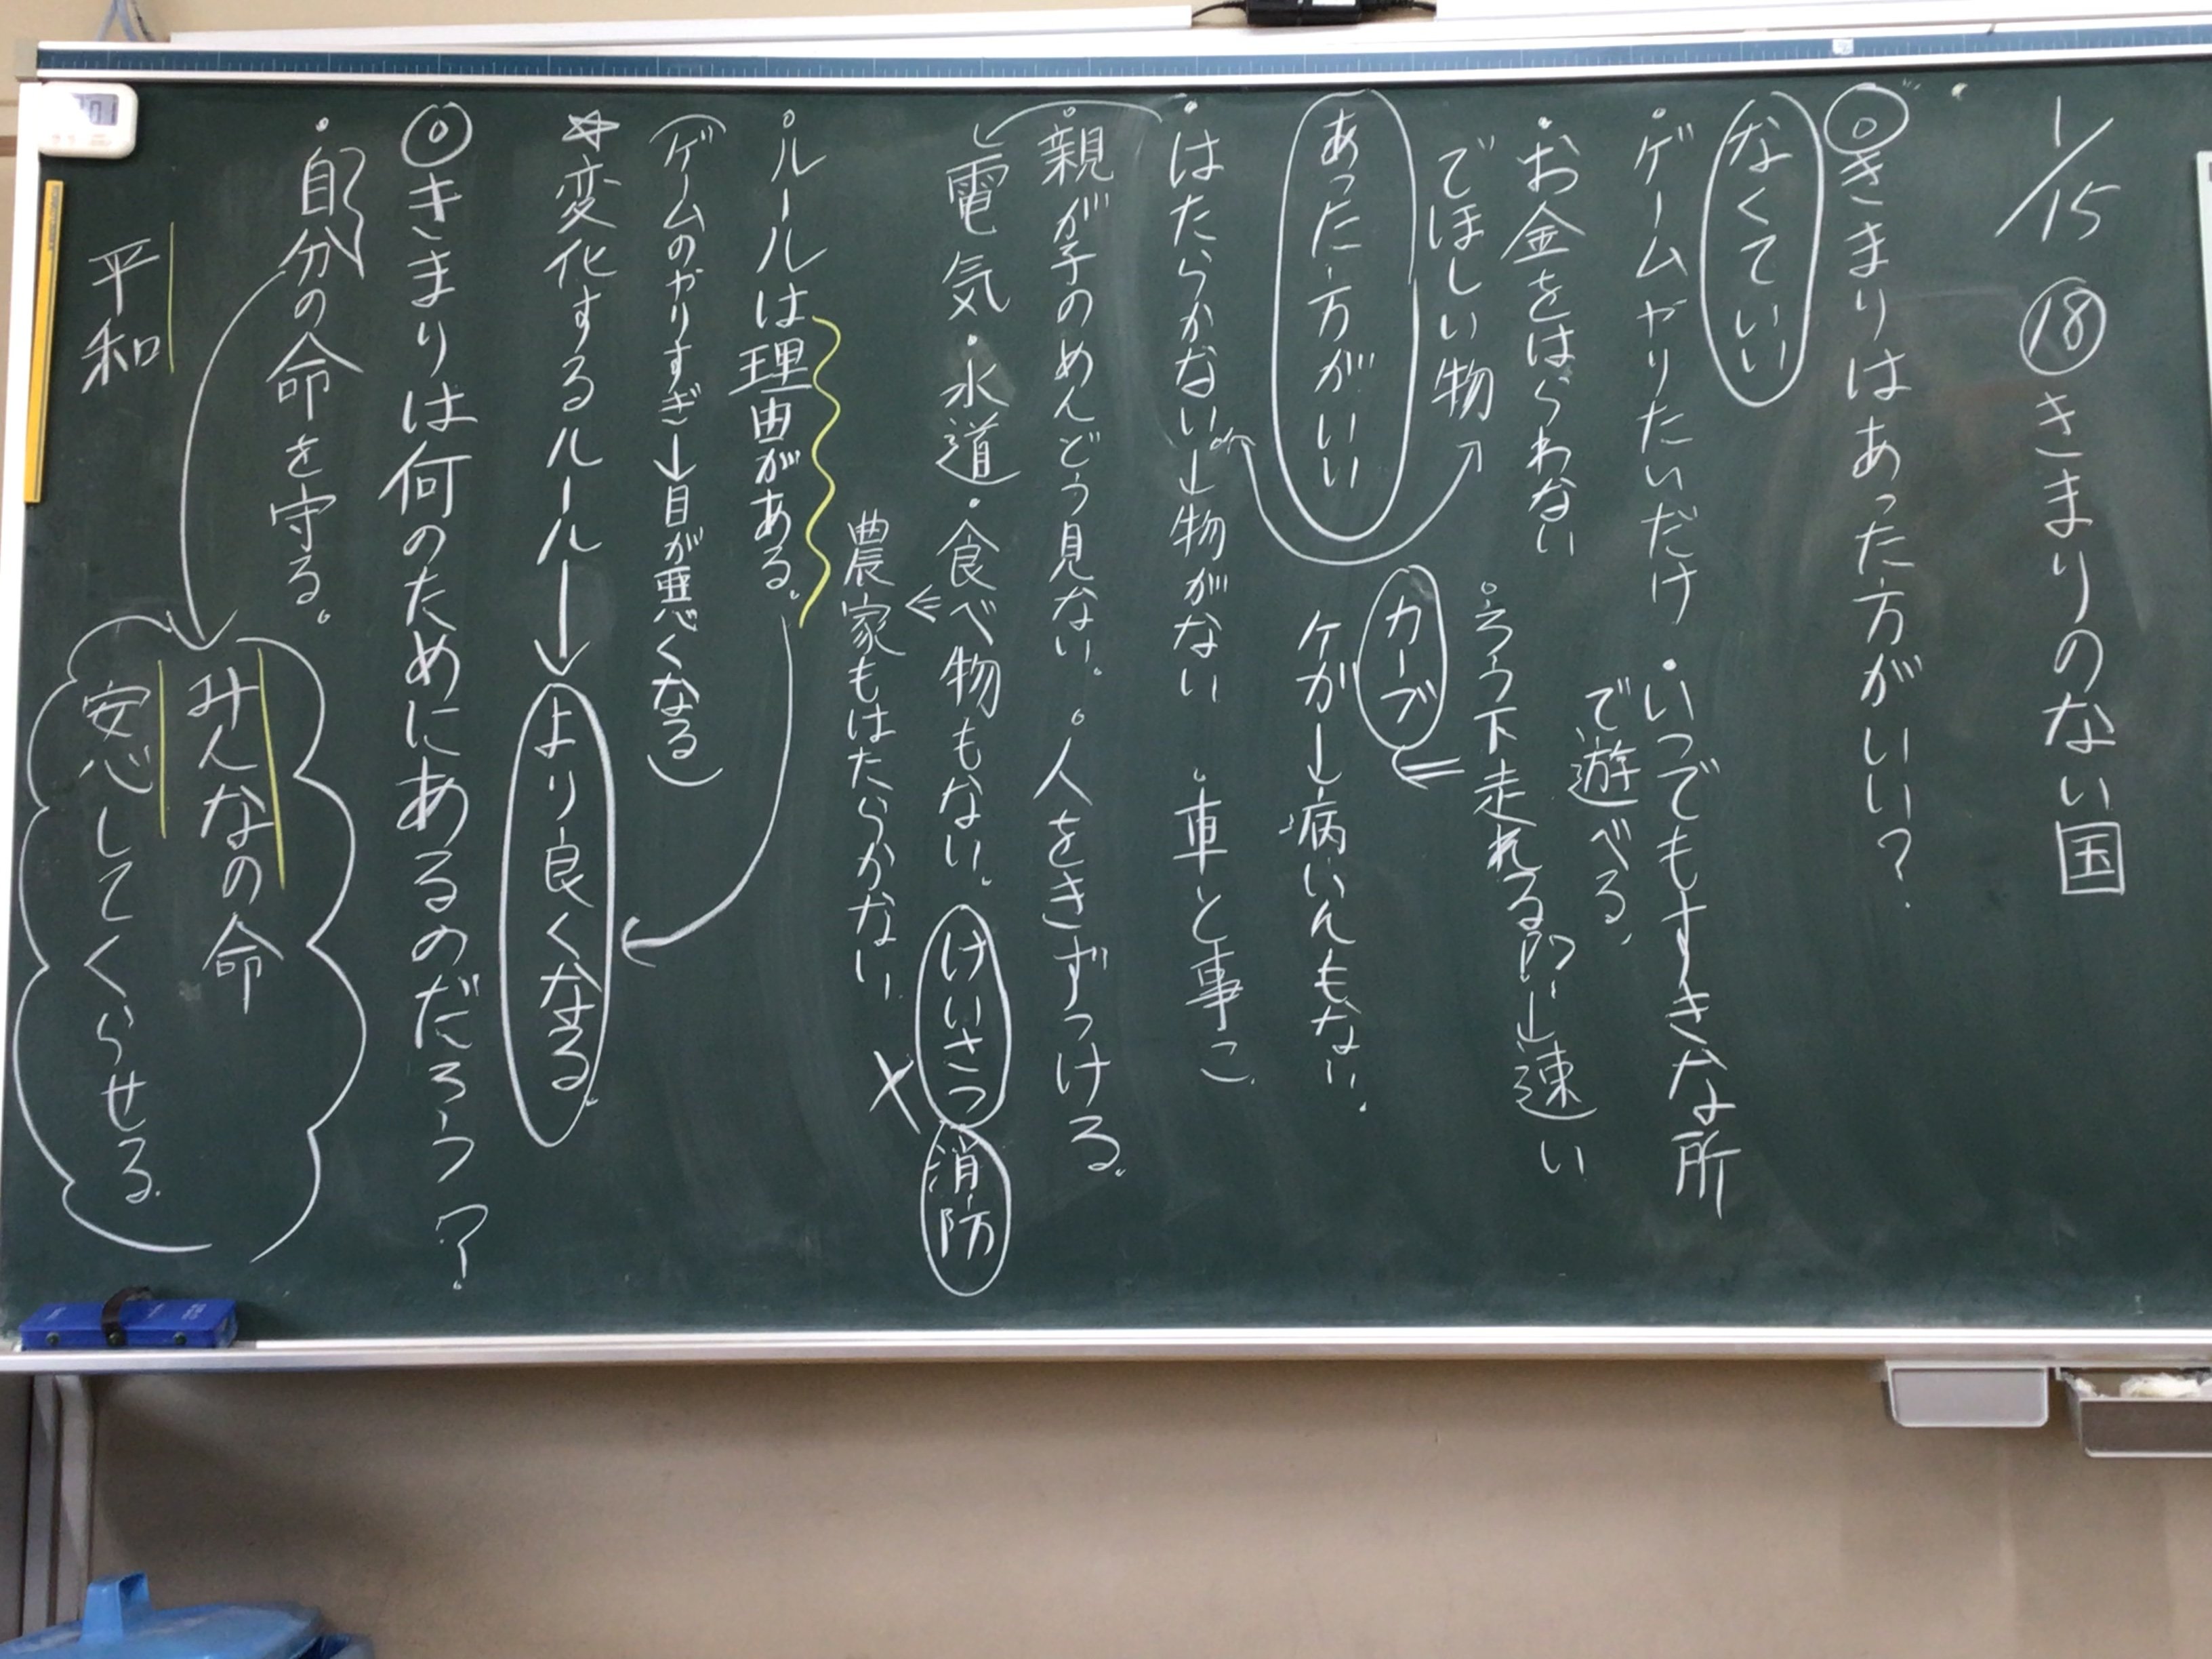 1/15 ⑱きまりのない国
◎きまりはあった方がいい?
なくていい
・ゲームやりたいだけ
・いつでもすきな所
で遊べる。
・お金をはらわない
でほしい物
・ろう下走れる
→速い
カーブ
ケガ→病いんもない。
あった方がいい
・はたらかない→物がない
・車と事こ
・親が子のめんどう見ない。
・人をきずつける。
電気・水道・食べ物もない。
けいさつ
消防
農家もはたらかない
×
・ルールは理由がある。
(ゲームのやりすぎ→目が悪くなる)
☆変化するルール→より良くなる
◎きまりは何のためにあるのだろう?
・自分の命を守る。
みんなの命
平和
安心してくらせる